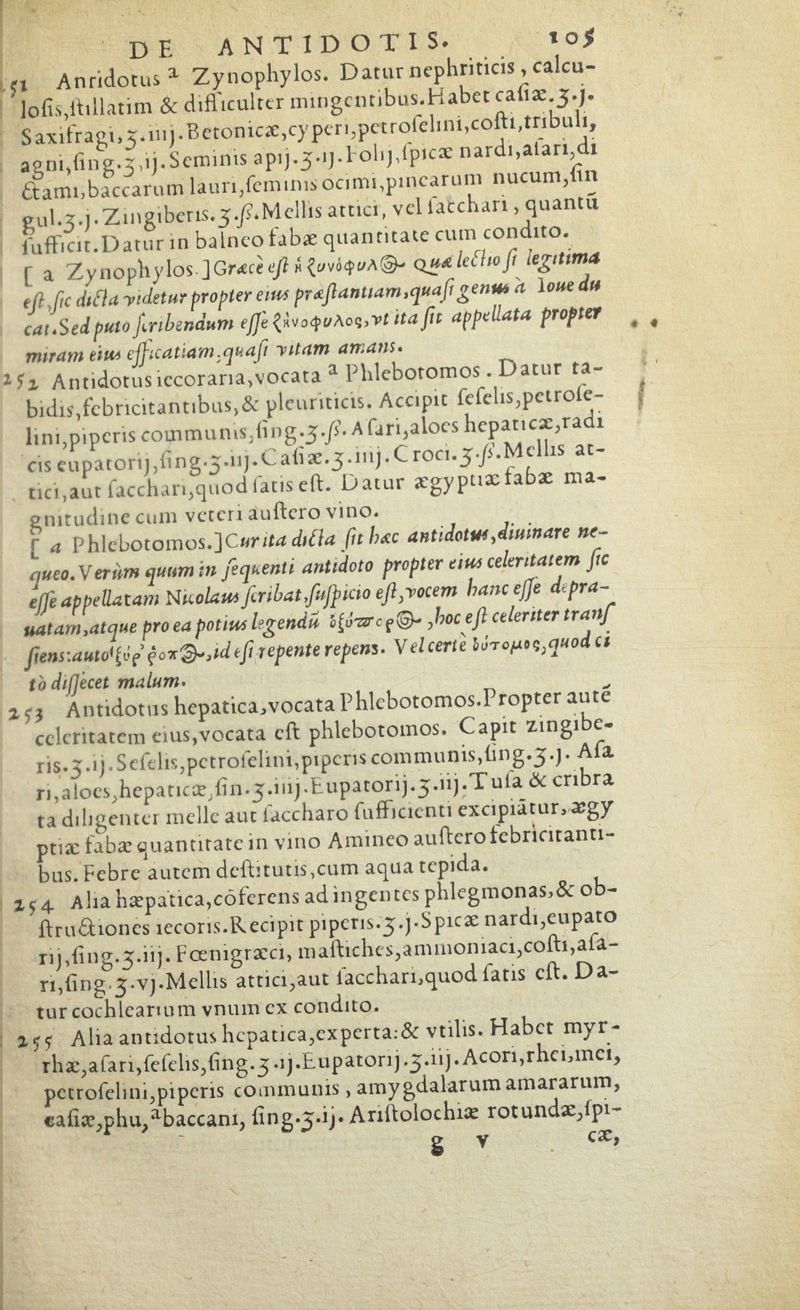 DE ANTIDOTIS. 105
51 Anridotus ª Zynophylos. Datur nephriticis, calcu-
losis,stillatim & difficulter mingentibus.Habet casiæ.ʒ.j.
Saxifragi,ʒ.iiij.Betonicæ,cyperi,petroselini,costi,tribuli,
agni,sing.ʒ,ij.Seminis apij.ʒ.ij.Folij,spicæ nardi,asari,di
ctami,baccarum lauri,seminis ocimi,pinearum nucum,sin
gul.ʒ.j.Zingiberis.ʒ.ß.Mellis attici, vel sacchari, quantū
sufficit.Datur in balneo fabæ quantitate cum condito.
[ a Zynophylos.]Græcè est ἡ ξυνόφυλ@- Quæ lectio si legitima
est,sic dicta videtur propter eius præstantiam,quasi genus à Ioue du
cat.Sed puto scribendum esse ζηνοφυλος,vt ita sit appellata propter
miram eius efficatiam,quasi vitam amans.
252 Antidotus iecoraria,vocata ª Phlebotomos. Datur ta-
bidis,febricitantibus,& pleuriticis. Accipit seselis,petrose-
lini,piperis communis,sing.ʒ.ß.Asari,aloes hepaticæ,radi
cis eupatorij,sing.ʒ.iij.Casiæ.ʒ.iiij.Croci.ʒ.ß.Mellis at-
tici,aut sacchari,quod satis est. Datur ægyptiæ fabæ ma-
gnitudine cum veteri austero vino.
[ a Phlebotomos.]Cur ita dicta sit hæc antidotus,diuinare ne-
queo.Verùm quum in sequenti antidoto propter eius celeritatem sic
esse appellatam Nicolaus scribat,suspicio est,vocem hanc esse depra-
uatam,atque pro ea potius legendū ὀξύπορ@- ,hoc est celeriter trans
siens:aut ὀξύρροπ@-,id est repente repens. Vel certè εὔτομος,quod ci
tò dissecet malum.
253 Antidotus hepatica,vocata Phlebotomos.Propter autē
celeritatem eius,vocata est phlebotomos. Capit zingibe-
ris.ʒ.ij.Seselis,petroselini,piperis communis,sing.ʒ.j. Asa
ri,aloes,hepaticæ,sin.ʒ.iiij.Eupatorij.ʒ.iij.Tusa & cribra
ta diligenter melle aut saccharo sufficienti excipiātur,ægy
ptiæ fabæ quantitate in vino Amineo austero febricitanti-
bus. Febre autem destitutis,cum aqua tepida.
254 Alia hæpatica,cōferens ad ingentes phlegmonas,& ob-
structiones iecoris.Recipit piperis.ʒ.j.Spicæ nardi,eupato
rij,sing.ʒ.iij. Fœnigræci, mastiches,ammoniaci,costi,asa-
ri,sing.ʒ.vj.Mellis attici,aut sacchari,quod satis est. Da-
tur cochlearium vnum ex condito.
255 Alia antidotus hepatica,experta:& vtilis. Habet myr-
rhæ,asari,seselis,sing.ʒ.ij.Eupatorij.ʒ.iij.Acori,rhei,mei,
petroselini,piperis communis, amygdalarum amararum,
casiæ,phu,ªbaccani, sing.ʒ.ij. Aristolochiæ rotundæ,spi-
g v cæ,